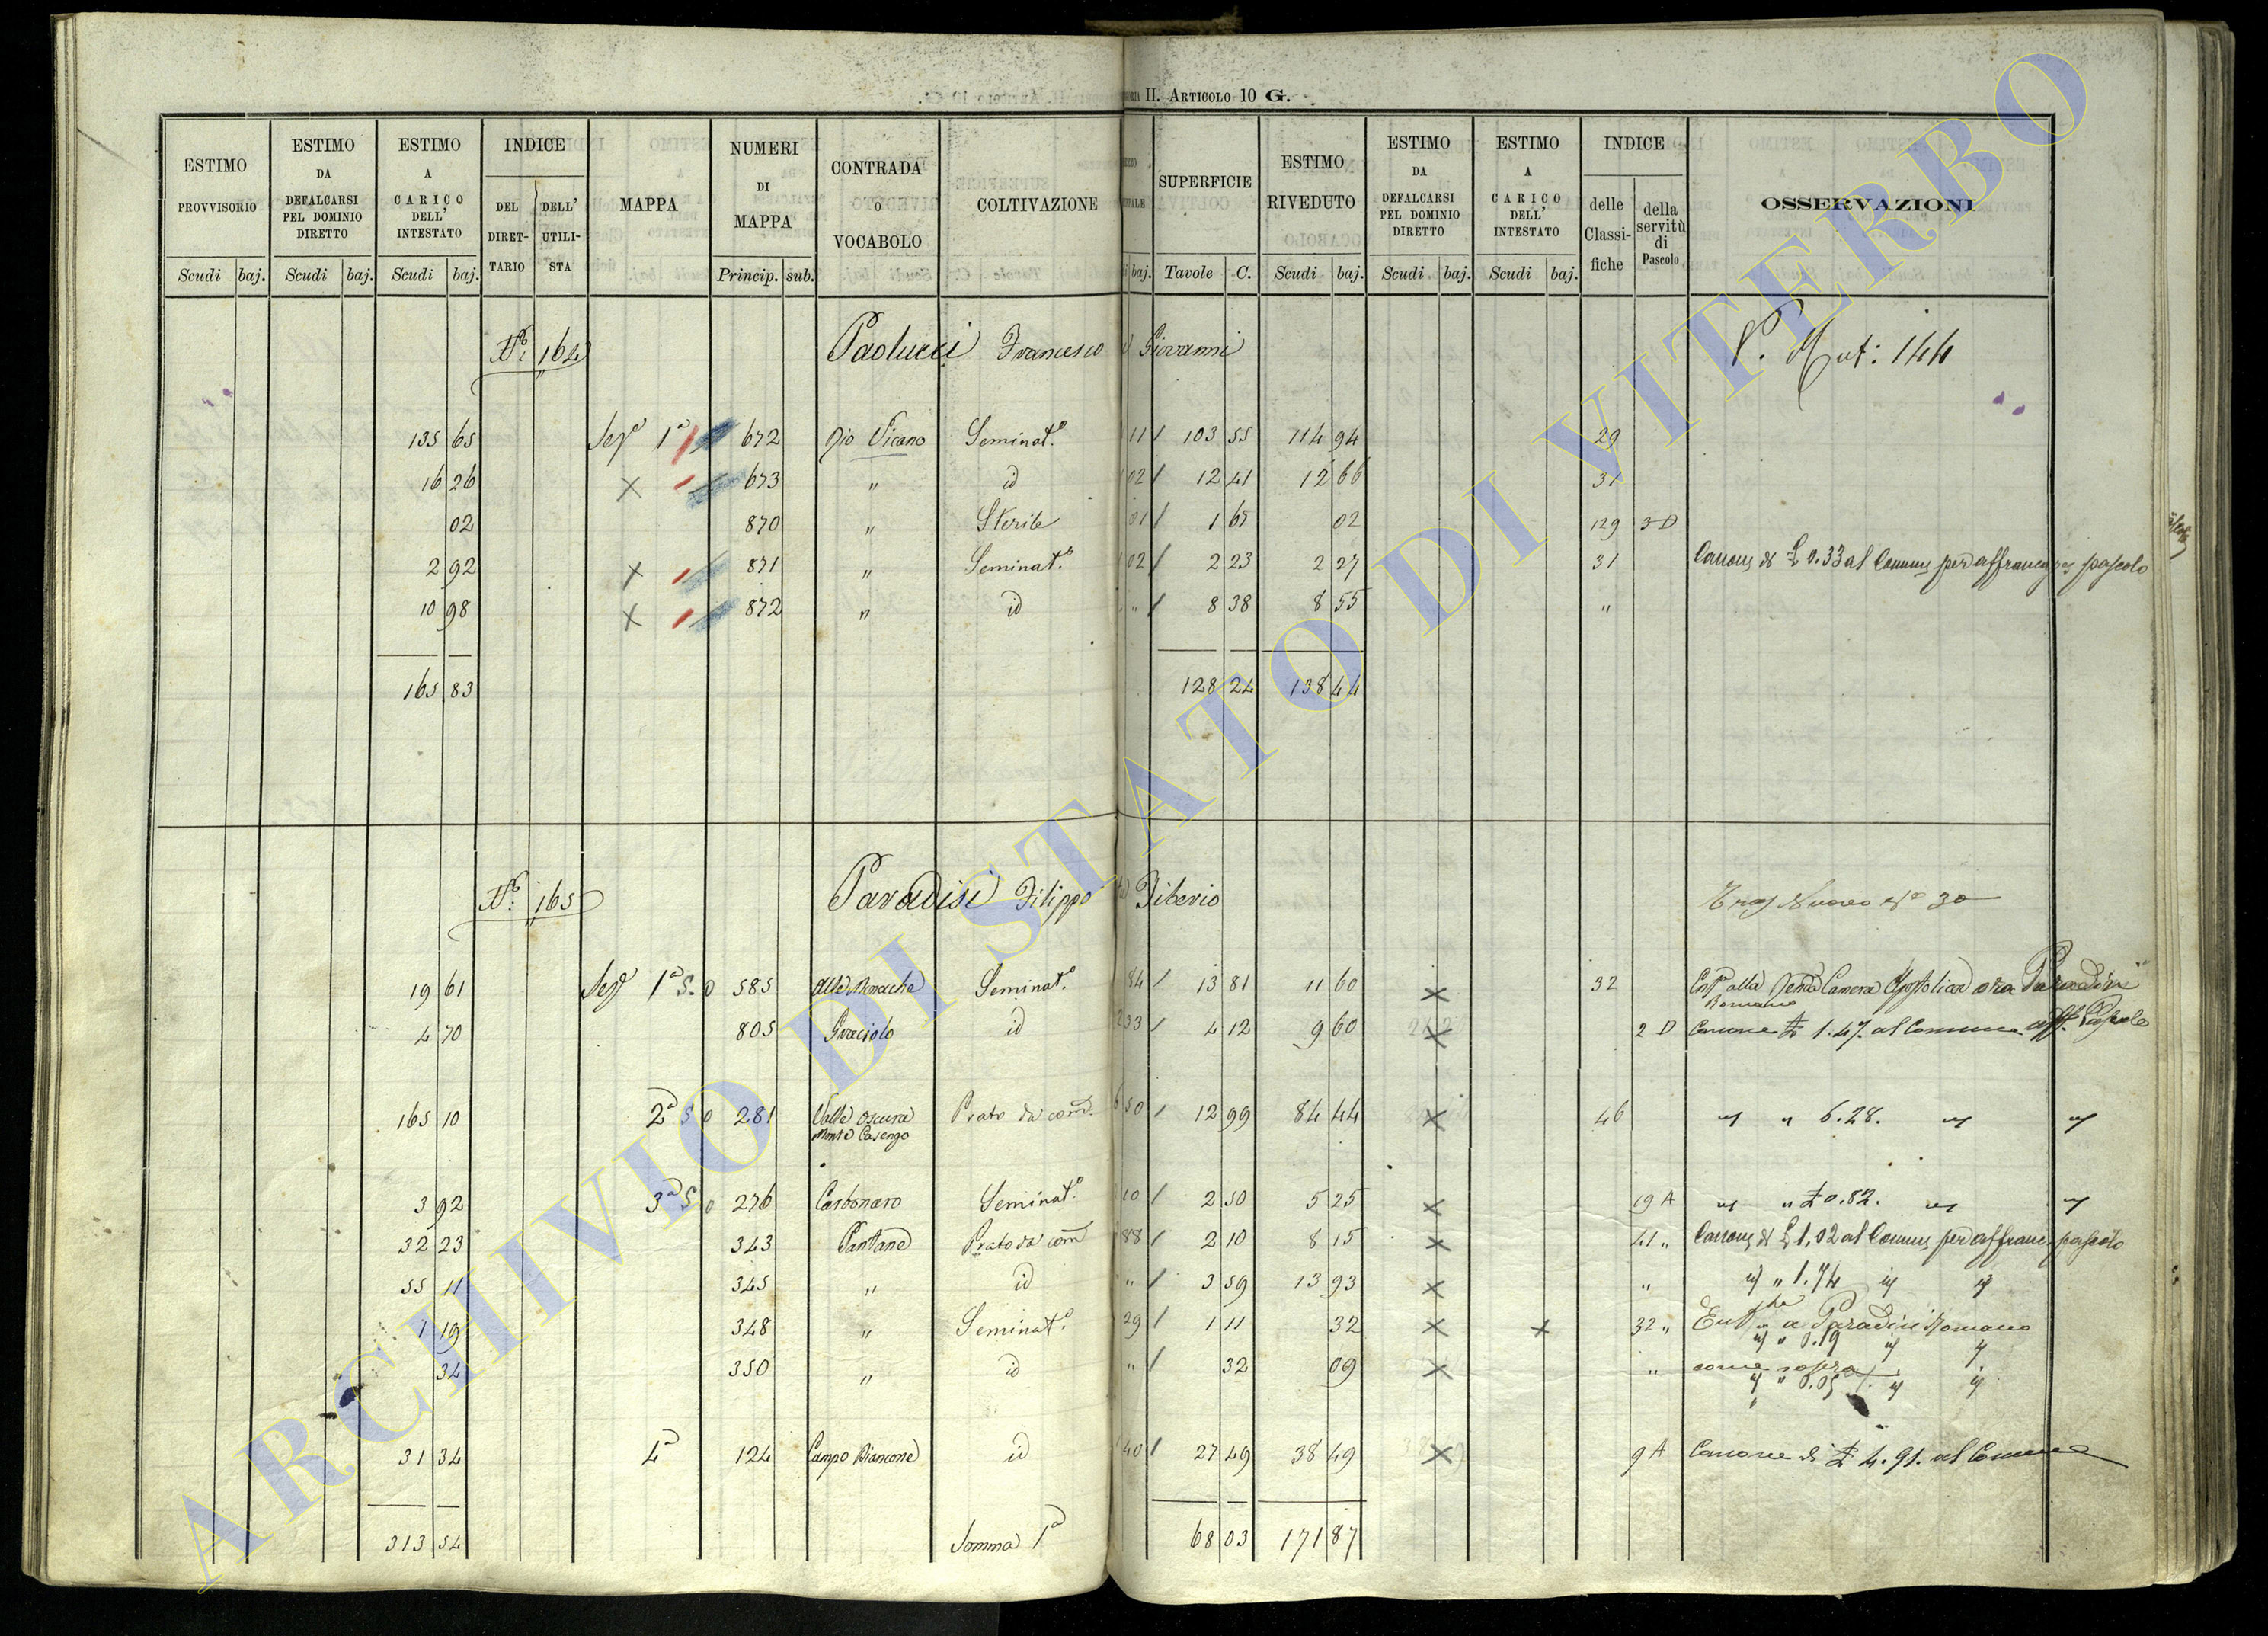 II. ARTICOLO 10 G.
ESTIMO PROVVISORIO
Scudi baj.
ESTIMO DA DEFALCARSI PEL DOMINIO DIRETTO
Scudi baj.
ESTIMO A CARICO DELL' INTESTATO
Scudi baj.
INDICE
DEL DIRET-TARIO
DELL' UTILI-STA
MAPPA
NUMERI DI MAPPA
Princip. sub.
CONTRADA O VOCABOLO
COLTIVAZIONE
baj.
SUPERFICIE
Tavole C.
ESTIMO RIVEDUTO
Scudi baj.
ESTIMO DA DEFALCARSI PEL DOMINIO DIRETTO
Scudi baj.
ESTIMO A CARICO DELL' INTESTATO
Scudi baj.
INDICE
delle Classi-fiche
della servitù di Pascolo
OSSERVAZIONI
N.º 164 Paolucci Francesco Giovanni V. Mut: 144
135 65 Seze 1a 672 Rio Vicano Seminat.o 11 103 55 114 94 29
16 26 673 " id 02 12 41 12 66 31
02 870 " Sterile 01 1 65 02 129 3 D
2 92 871 " Seminat.o 02 2 23 2 27 31 Canone di £ 0.33 al Comune per affranc pascolo
10 98 872 " id " 8 38 8 55 "
165 83 128 24 138 44
N.º 165 Paradisi Filippo Tiberio Nuovo No 30
19 61 Sez 1a S. o 585 Alle Monache Seminat.o 84 13 81 11 60 32 alla Camera Apostolica ora Paradisi
Romano
4 70 805 id 33 4 12 9 60 2 D Canone £ 1.47. al Comune aff. Pascolo
165 10 2a S o 281 Valle oscura Prato da com. 50 12 99 84 44 46 " " 6.28. " "
Monte
3 92 3a S o 276 Carbonaro Seminat.o 10 2 50 5 25 19 A " " £ 0.82. " "
32 23 343 Pantane Prato da com 88 2 10 8 15 41 " Canone di £ 1,02 al Comune per affranc pascolo
55 11 345 " id " 3 59 13 93 " id " 1.74 id id
1 19 348 " Seminat.o 29 1 11 32 32 " a Paradisi Romano
id " 0.19 id id
34 350 " id " 32 09 " come sopra
id " 0.05 id id
31 34 4a 124 Campo Biancone id 40 27 49 38 49 9 A Canone di £ 4.91. al Comune
313 54 Somma 1a 68 03 171 87
ARCHIVIO DI STATO DI VITERBO